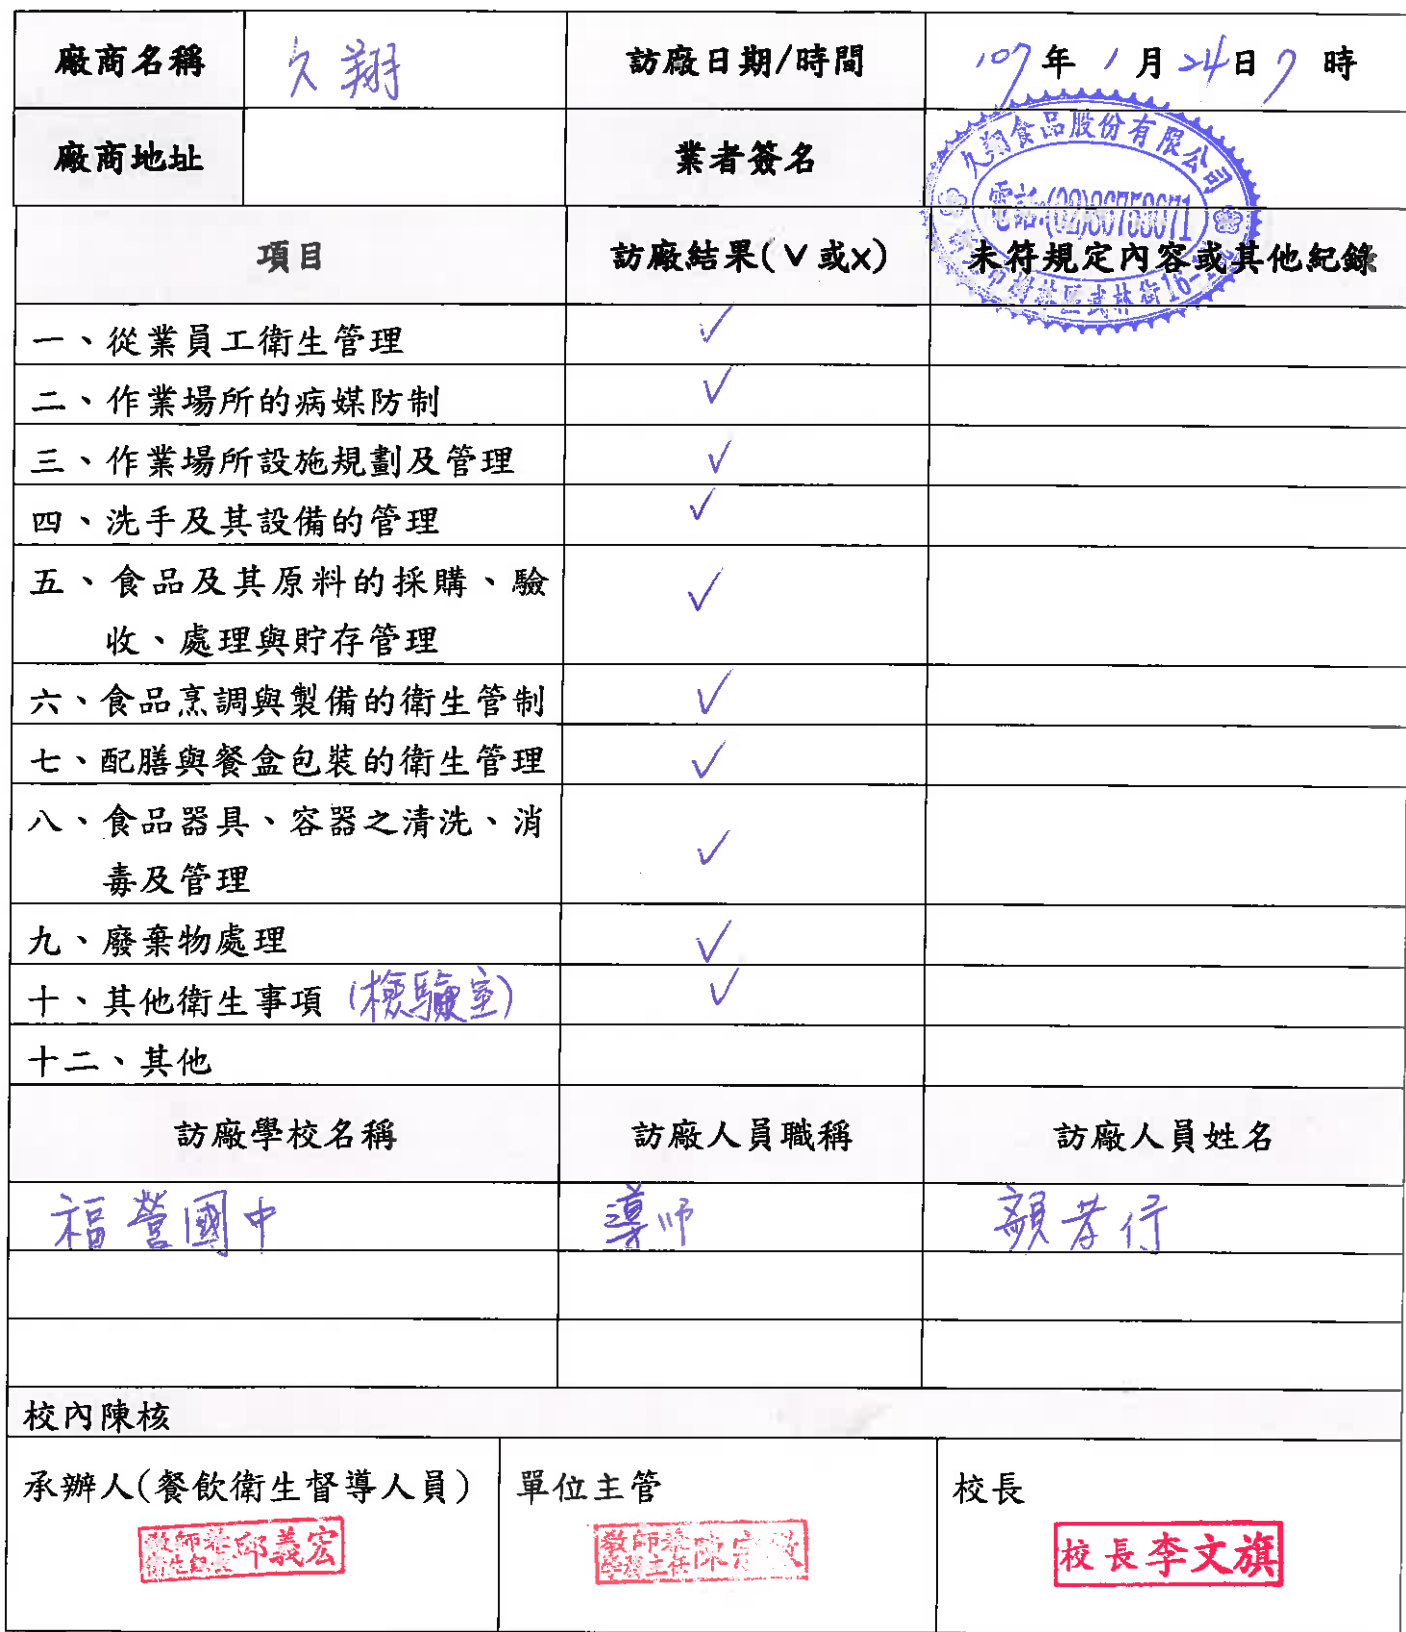 廠商名稱 久翔 訪廠日期/時間 107年1月24日9時
廠商地址 業者簽名
久翔食品股份有限公司
電話:(02)86758671
樹林區武林街16-
項目 訪廠結果(∨或x) 未符規定內容或其他紀錄
一、從業員工衛生管理 ✓
二、作業場所的病媒防制 ✓
三、作業場所設施規劃及管理 ✓
四、洗手及其設備的管理 ✓
五、食品及其原料的採購、驗 ✓
收、處理與貯存管理
六、食品烹調與製備的衛生管制 ✓
七、配膳與餐盒包裝的衛生管理 ✓
八、食品器具、容器之清洗、消 ✓
毒及管理
九、廢棄物處理 ✓
十、其他衛生事項 (檢驗室) ✓
十二、其他
訪廠學校名稱 訪廠人員職稱 訪廠人員姓名
福營國中 導師 顏孝
校內陳核
承辦人(餐飲衛生督導人員) 單位主管 校長
教師兼 衛生組長 邱義宏 教師兼 學務主任 陳宗 校長李文旗